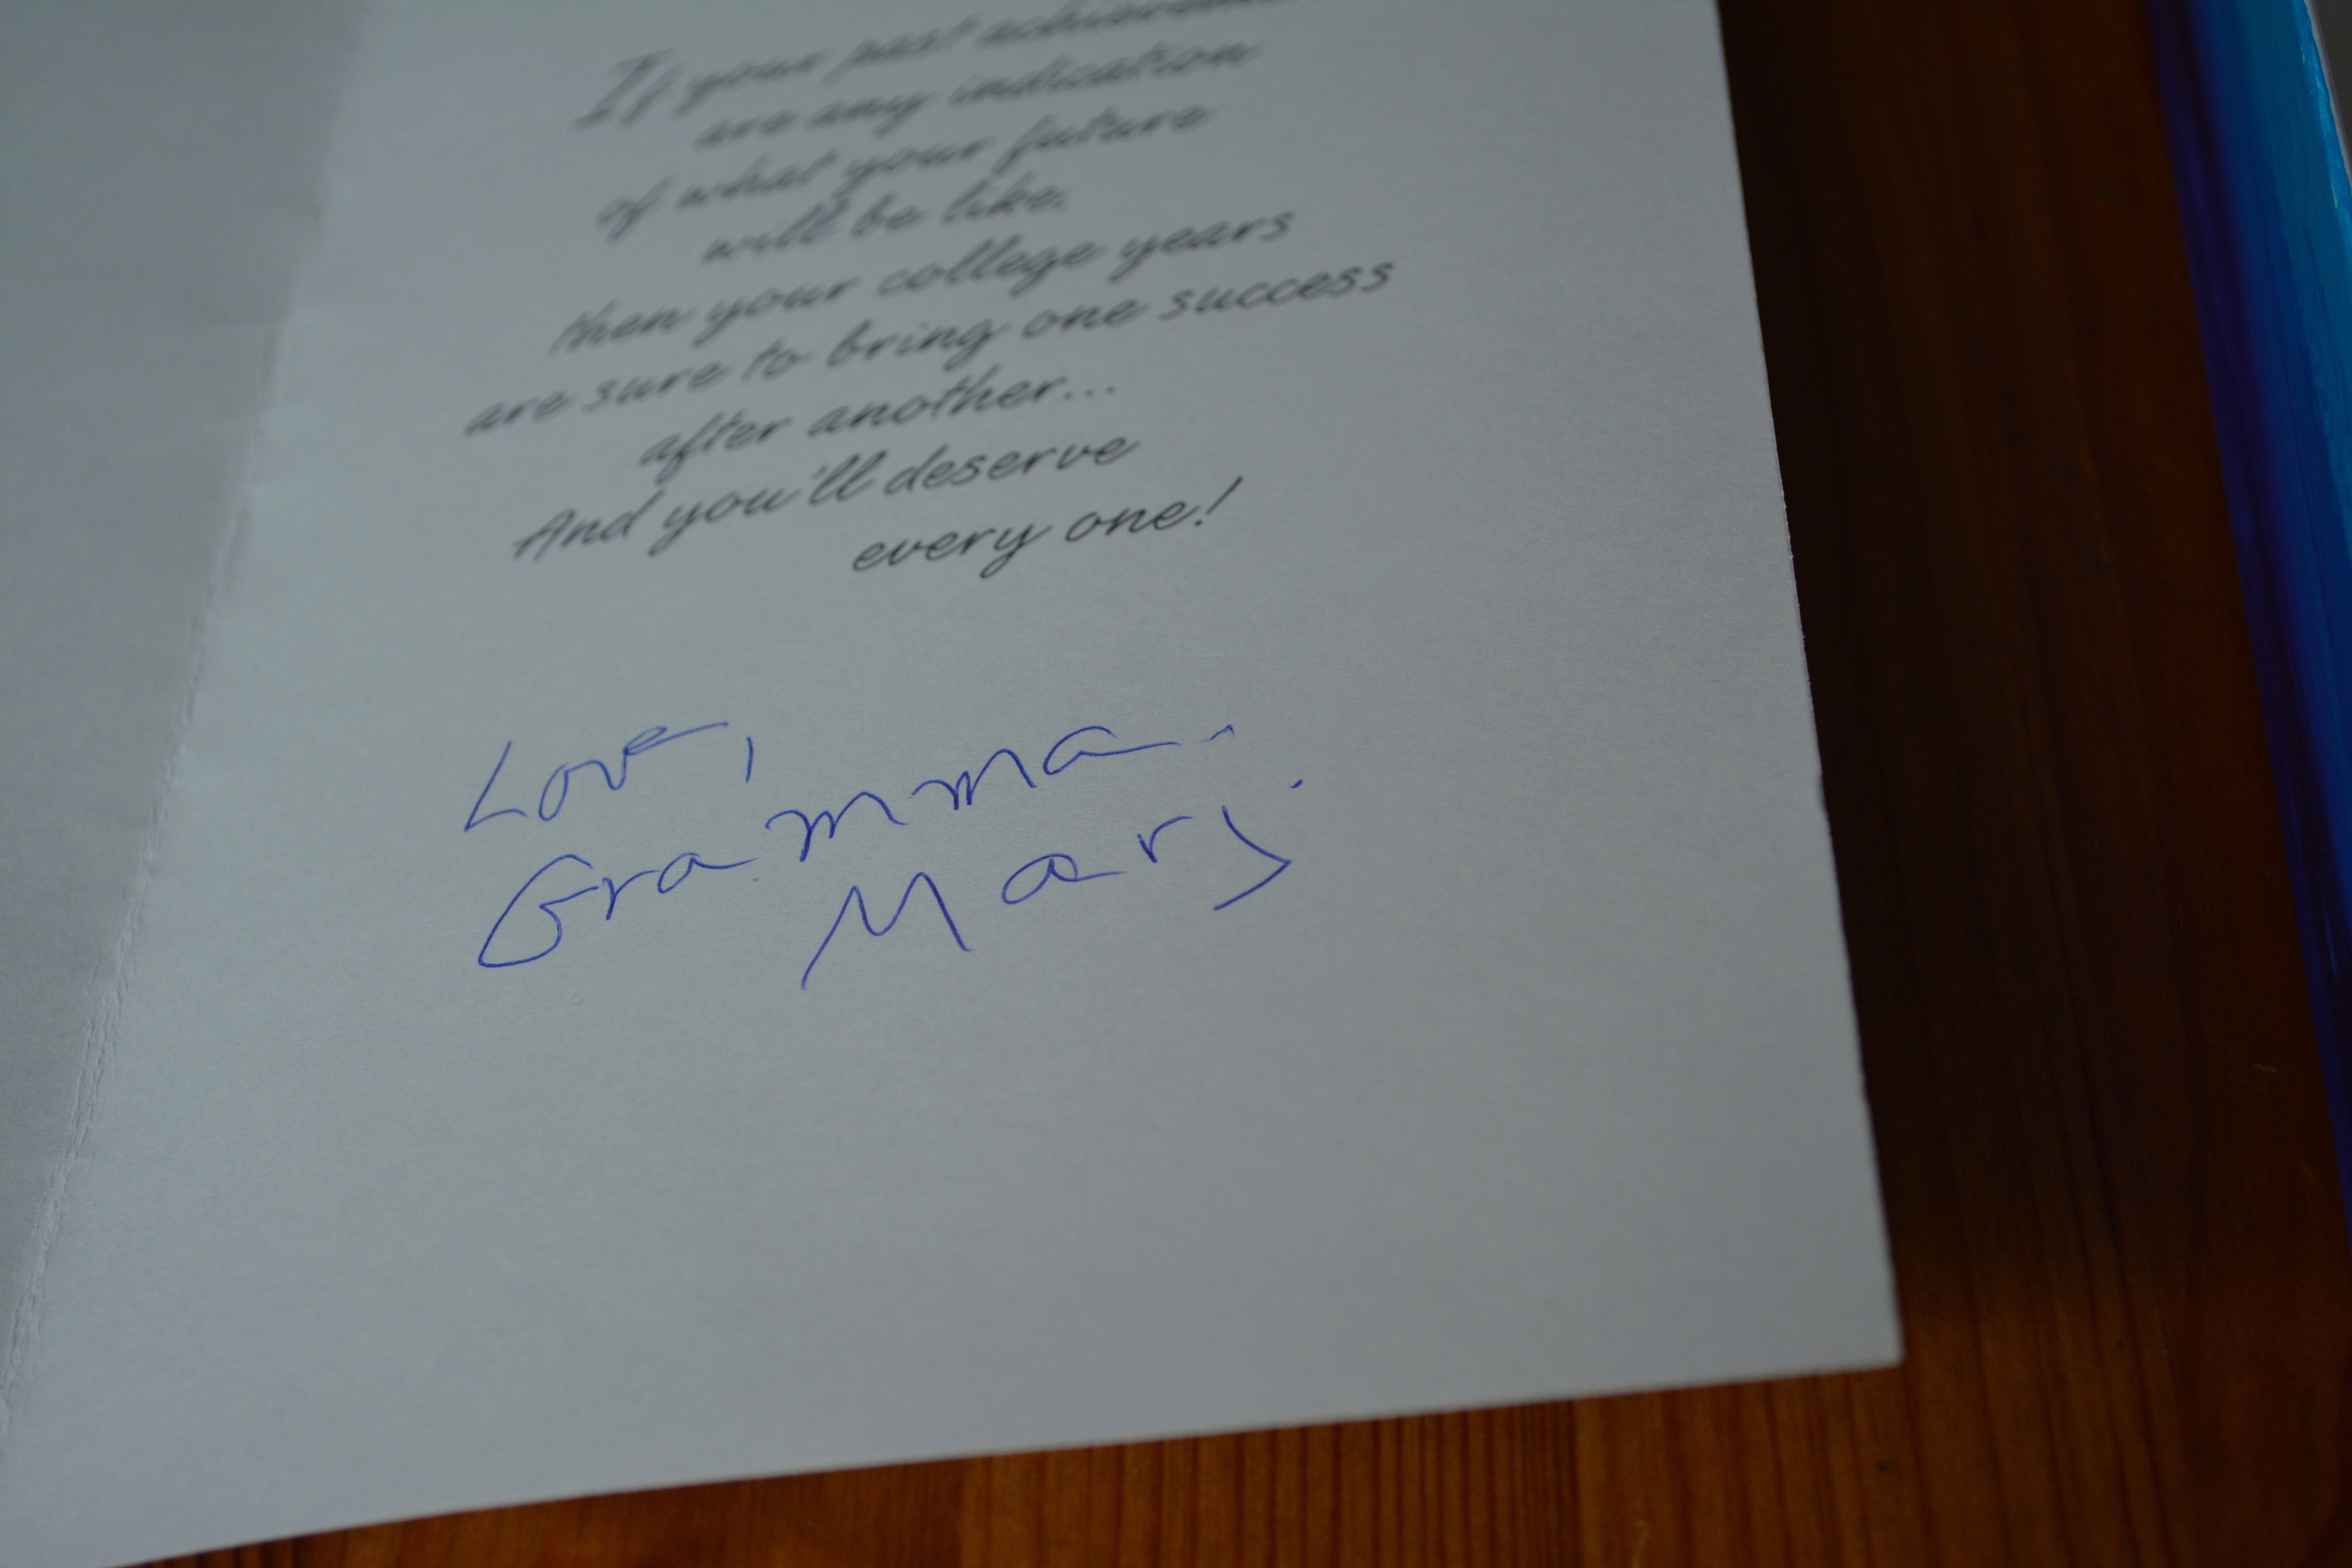 If your past achievements
are any indication
of what your future
will be like,
then your college years
are sure to bring one success
after another...
And you'll deserve
every one!
Love,
Gramma
Marj